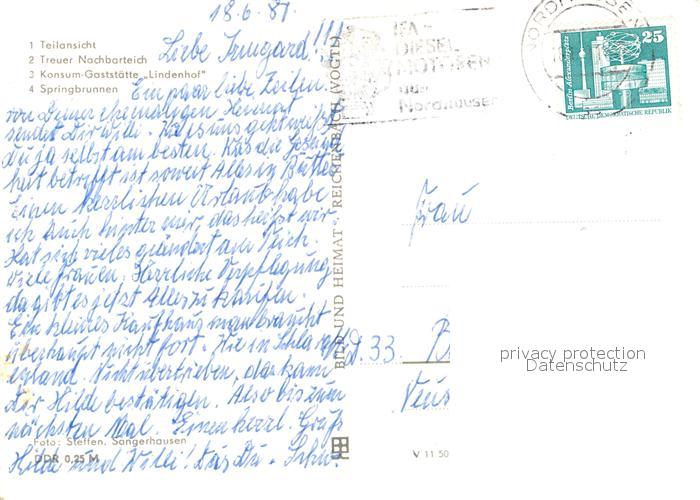 18.6.81
1 Teilansicht
2 Treuer Nachbarteich
3 Konsum-Gaststätte „Lindenhof"
4 Springbrunnen
Liebe Irmgard!!!
Ein paar liebe Zeilen
von Deiner ehemaligen Heimat
sendet Dir Willi. Wie es uns geht weißt
Du ja selbst am besten. Was die Gesund
heit betrifft ist soweit Alles in Butter
Einen herrlichen Urlaub habe
ich auch hinter mir, das heißt wir.
Hat sich vieles geändert am Teich.
Viele Frauen. Herrliche Verpflegung
da gibt es jetzt Alles zu kaufen.
Ein kleines Kaufhaus man braucht
überhaupt nicht fort. Wie in Schlaraffen
enland. Nicht übertrieben, das kann
Dir Hilde bestätigen. Also bis zum
nächsten Mal. Einen herzl. Gruß
Hilde und Willi!
Foto: Steffen, Sangerhausen
DDR 0,25 M
BILD UND HEIMAT · REICHENBACH (VOGTL)
IFA-
DIESEL
MOTOREN
aus
Nordhausen
NORDHAUSEN
Berlin, Alexanderplatz
25
DEUTSCHE DEMOKRATISCHE REPUBLIK
Frau
33
privacy protection
Datenschutz
V 11 50